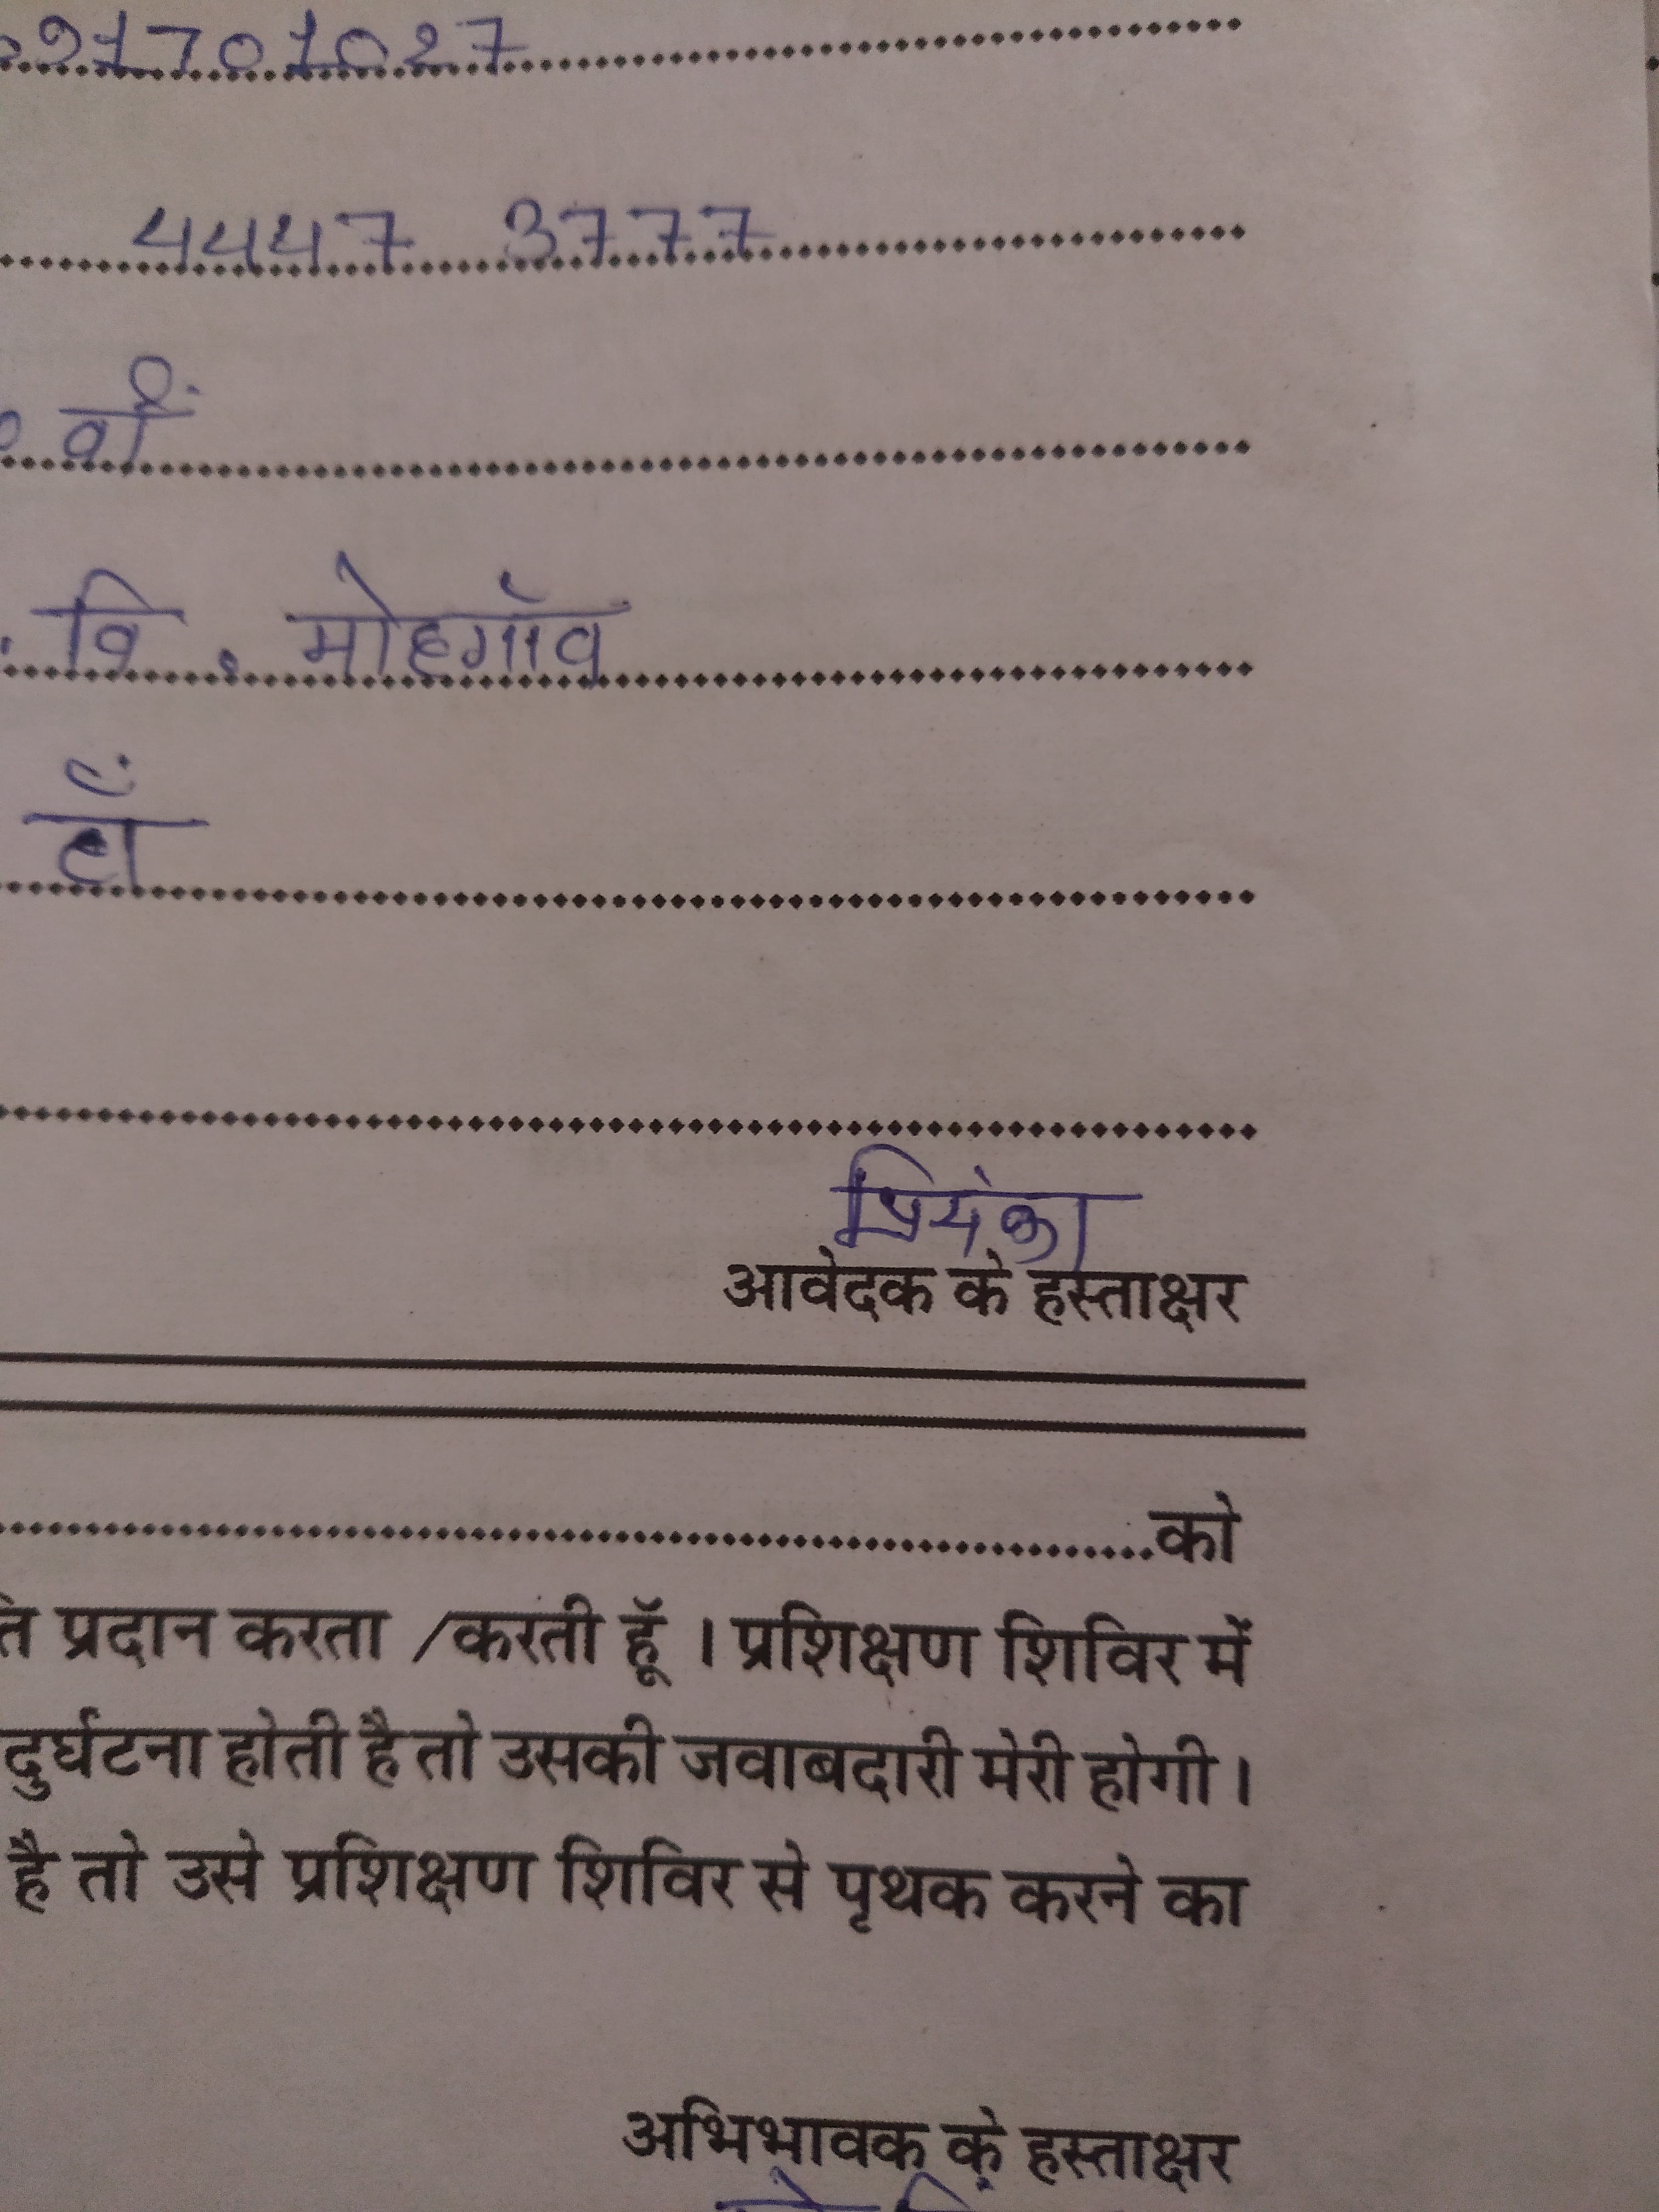 21701027
4447 3777
वीं
वि. मोहगाँव
हाँ
प्रियंका
आवेदक के हस्ताक्षर
को
ति प्रदान करता /करती हूॅ । प्रशिक्षण शिविर में
दुर्घटना होती है तो उसकी जवाबदारी मेरी होगी ।
है तो उसे प्रशिक्षण शिविर से पृथक करने का
अभिभावक के हस्ताक्षर